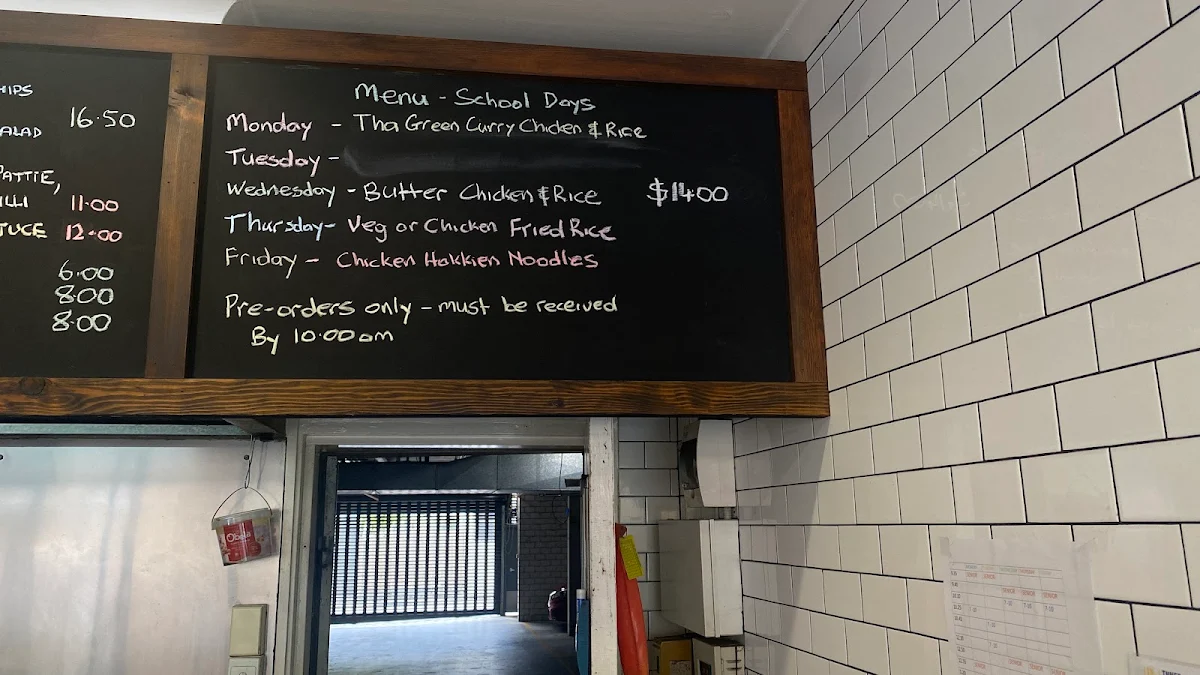 HIPS
16.50
ALAD
PATTIE,
ILLI 11.00
TUCE 12.00
6.00
8.00
8.00
Menu - School Days
Monday - Tha Green Curry Chicken & Rice
Tuesday -
Wednesday - Butter Chicken & Rice $14.00
Thursday - Veg or Chicken Fried Rice
Friday - Chicken Hakkien Noodles
Pre-orders only - must be received
By 10.00am
Obela